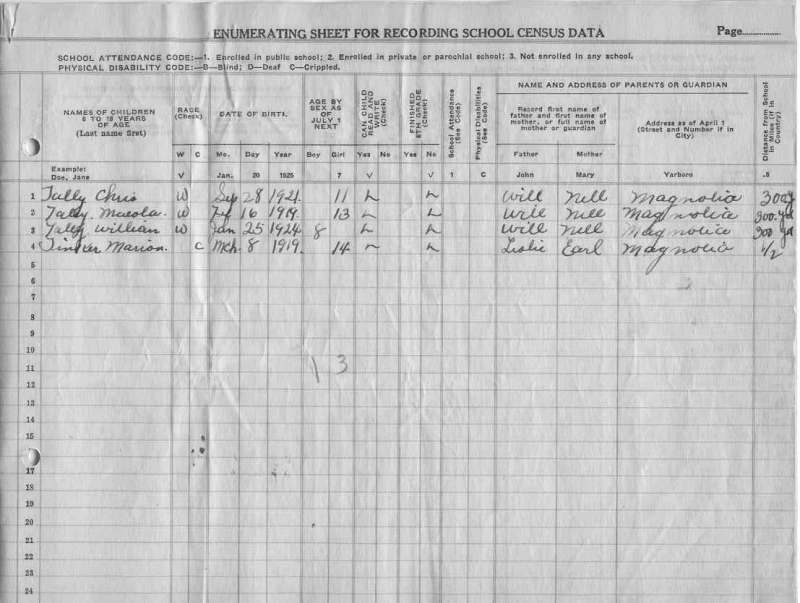 ENUMERATING SHEET FOR RECORDING SCHOOL CENSUS DATA Page
SCHOOL ATTENDANCE CODE:—1. Enrolled in public school; 2. Enrolled in private or parochial school; 3. Not enrolled in any school.
PHYSICAL DISABILITY CODE:—B—Blind; D—Deaf C—Crippled.
NAMES OF CHILDREN
6 TO 18 YEARS
OF AGE
(Last name first)
RACE
(Check)
DATE OF BIRTH.
AGE BY
SEX AS
OF
JULY 1
NEXT
CAN CHILD
READ AND
WRITE
(Check)
FINISHED
8TH GRADE
(Check)
School Attendance
(See Code)
Physical Disabilities
(See Code)
NAME AND ADDRESS OF PARENTS OR GUARDIAN
Record first name of
father and first name of
mother, or full name of
mother or guardian
Address as of April 1
(Street and Number if in
City)
Distance from School
in Miles (if in
Country)
W C Mo. Day Year Boy Girl Yes No Yes No 1 C Father Mother
Example:
Doe, Jane V Jan. 20 1925 7 V V John Mary Yarboro .8
1 Tally Chris W Sep 28 1921 11 Will Nell Magnolia 300 y
2 Tally W 16 1919 13 Will Nell Magnolia 300 yd
3 Tally William W Jan 25 1924 8 Will Nell Magnolia 300 yd
4 Tinker Marion. C Mch. 8 1919. 14 Leslie Earl Magnolia 1/2
5
6
7
8
9
10
11 13
12
13
14
15
17
18
19
20
21
22
23
24